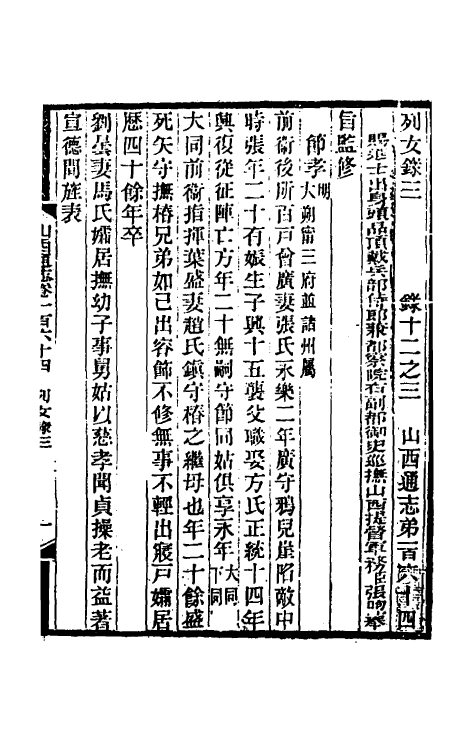 列女錄三　錄十二之三　山西通志弟一百六十四
賜進士出身頭品頂戴兵部侍郎兼都察院右副都御史巡撫山西提督軍務張
旨監修
節孝明 大朔甯三府並諸州屬
前衞後所百戸曾廣妻張氏永樂二年廣守鴉兒崖陷敵中
時張年二十有娠生子興十五襲父職娶方氏正統十四年
興復從征陣亡方年二十無嗣守節同姑俱享永年大同下同
大同前衞指揮葉盛妻趙氏鎭守椿之繼母也年二十餘盛
死矢守撫椿兄弟如己出容飾不修無事不輕出寢戸孀居
歴四十餘年卒
劉曇妻馬氏孀居撫幼子事舅姑以慈孝聞貞操老而益著
宣德間旌表
山西通志卷一百六十四　列女錄三　一